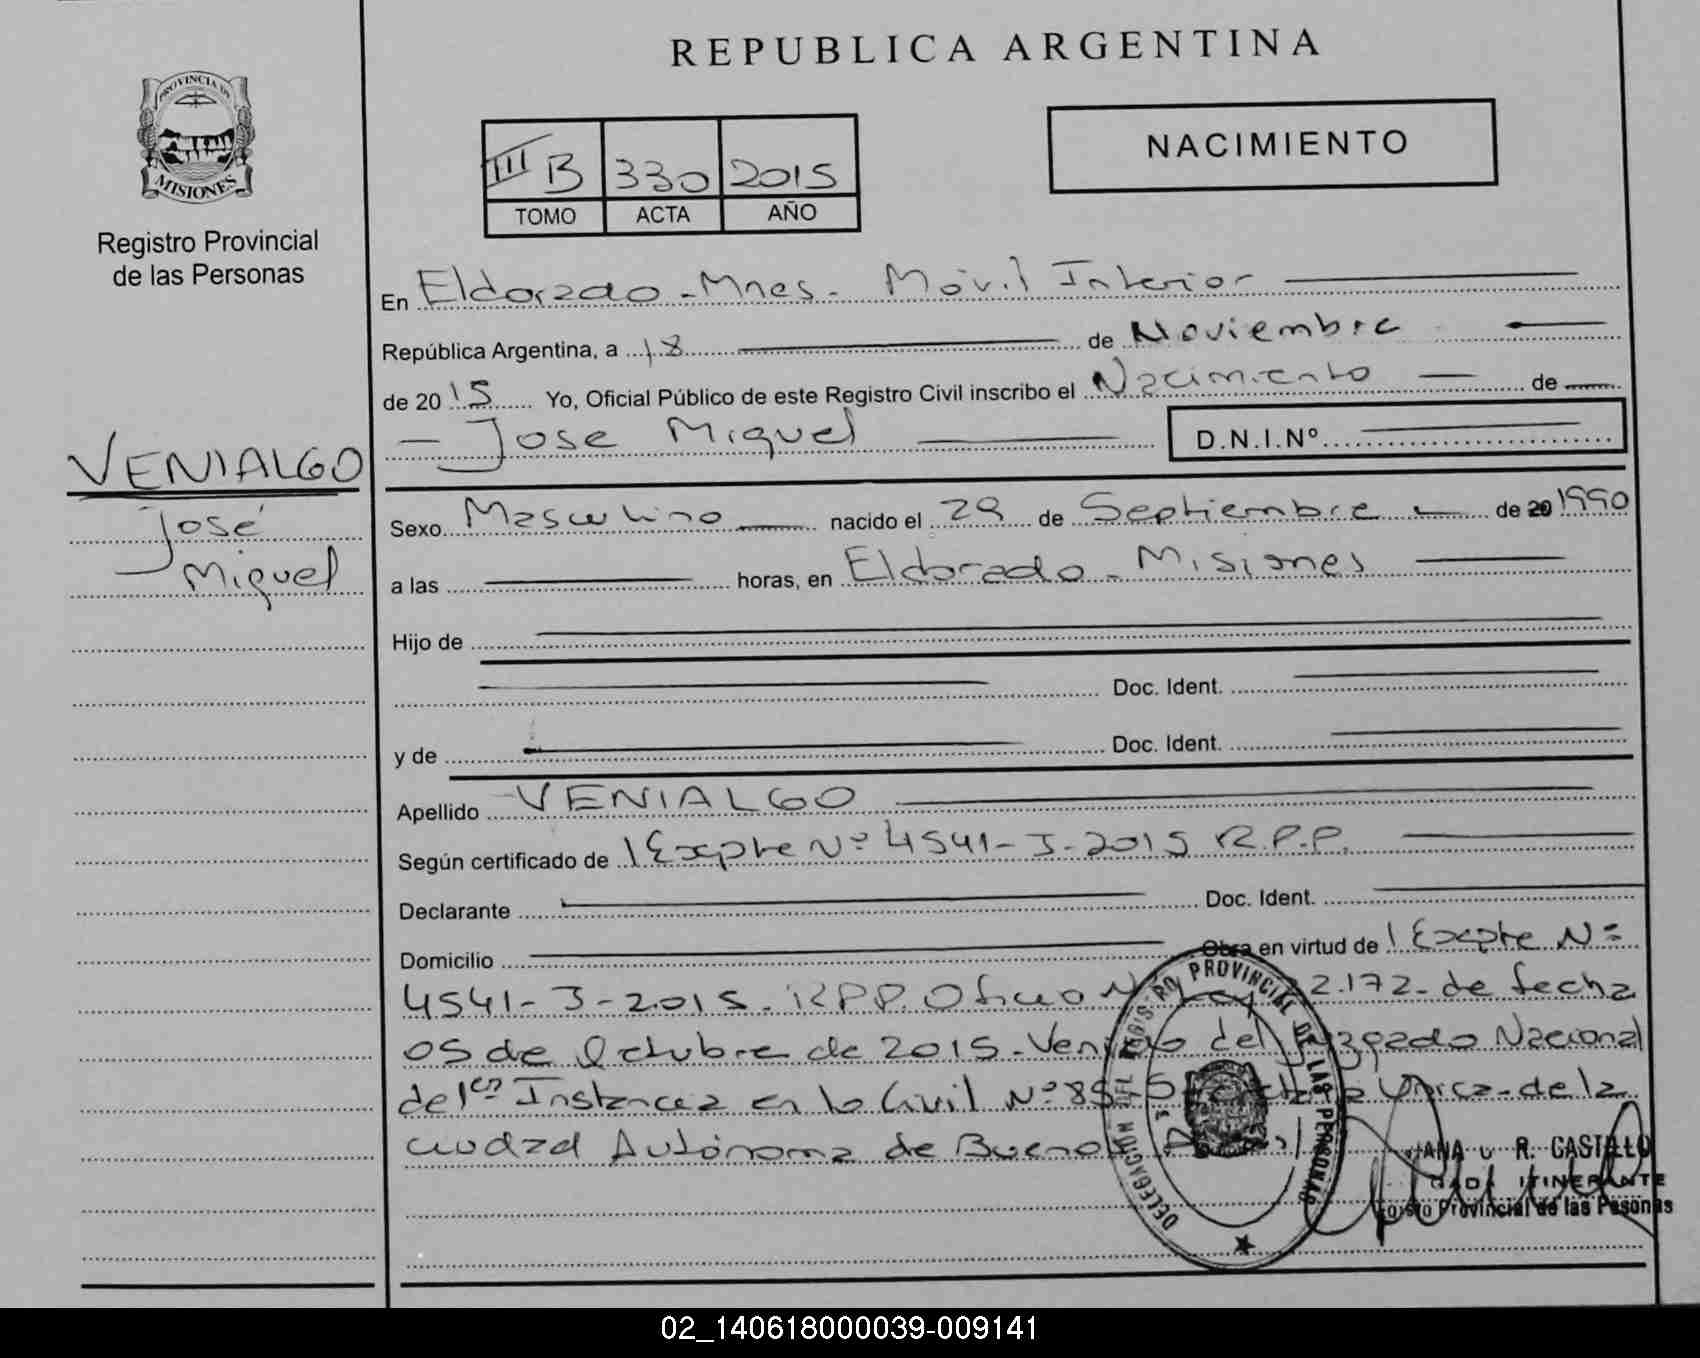 REPUBLICA ARGENTINA
PROVINCIA DE
MISIONES
Registro Provincial
de las Personas
III B 330 2015
TOMO ACTA AÑO
NACIMIENTO
En Eldorado - Mnes - Móvil Interior
República Argentina, a 18 de Noviembre
de 2015 Yo, Oficial Público de este Registro Civil inscribo el Nacimiento de
Jose Miguel D.N.I.Nº
VENIALGO
José
Miguel
Sexo Masculino nacido el 29 de Septiembre de 20 1990
a las horas, en Eldorado - Misiones
Hijo de
Doc. Ident.
y de Doc. Ident.
Apellido VENIALGO
Según certificado de 1 Expte Nº 4541-J-2015 R.P.P.
Declarante Doc. Ident.
Domicilio Obra en virtud de 1 Expte Nº
4541-J-2015. RPP. Oficio Ley 22.172- de fecha
05 de Octubre de 2015- Venido del Juzgado Nacional
de 1era Instancia en lo Civil Nº 85- Única- de la
ciudad Autónoma de Buenos
DELEGACION DEL REGISTRO PROVINCIAL DE LAS PERSONAS
R. CASTILLO
ITINERANTE
Provincial de las Pesonas
02_140618000039-009141